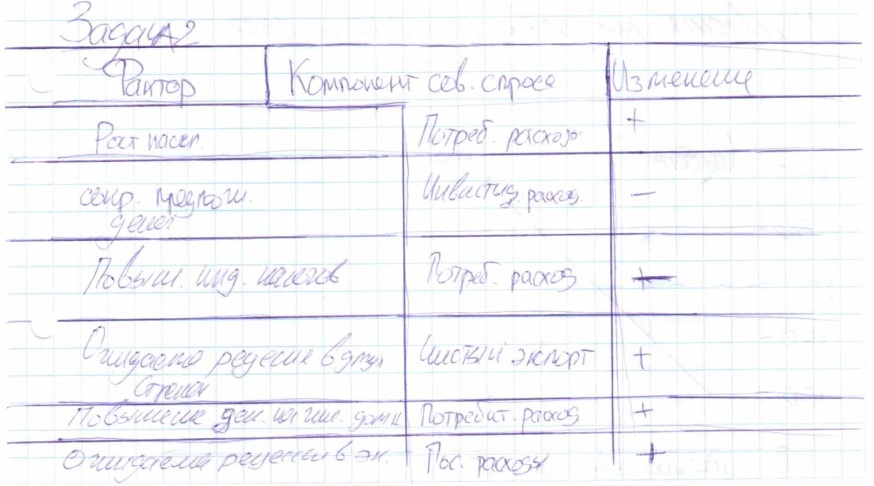 Задача 2
Фактор Компонент сов. спроса Изменение
Рост насел. Потреб. расходы +
сокр. предлож. Инвестиц расход —
денег
Повыш. инд. налогов Потреб. расход —
Ожидаемая рецессия в друг Чистый экспорт +
странах
Повышение ден. Потребит. расход +
Ожидаема рецессия в эк. Гос. расходы +